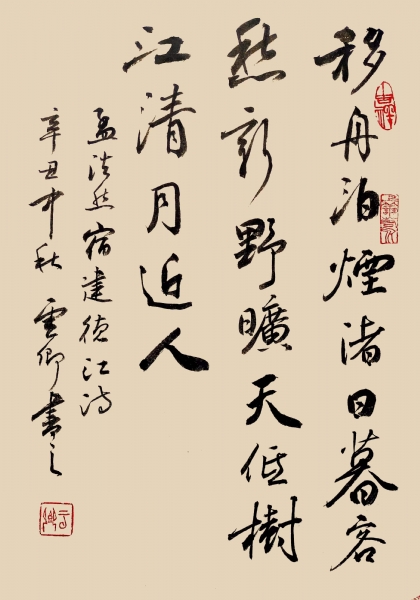 移舟泊煙渚日暮客
愁新野曠天低樹
江清月近人
孟浩然宿建德江詩
辛丑中秋雲卿書之
雲卿